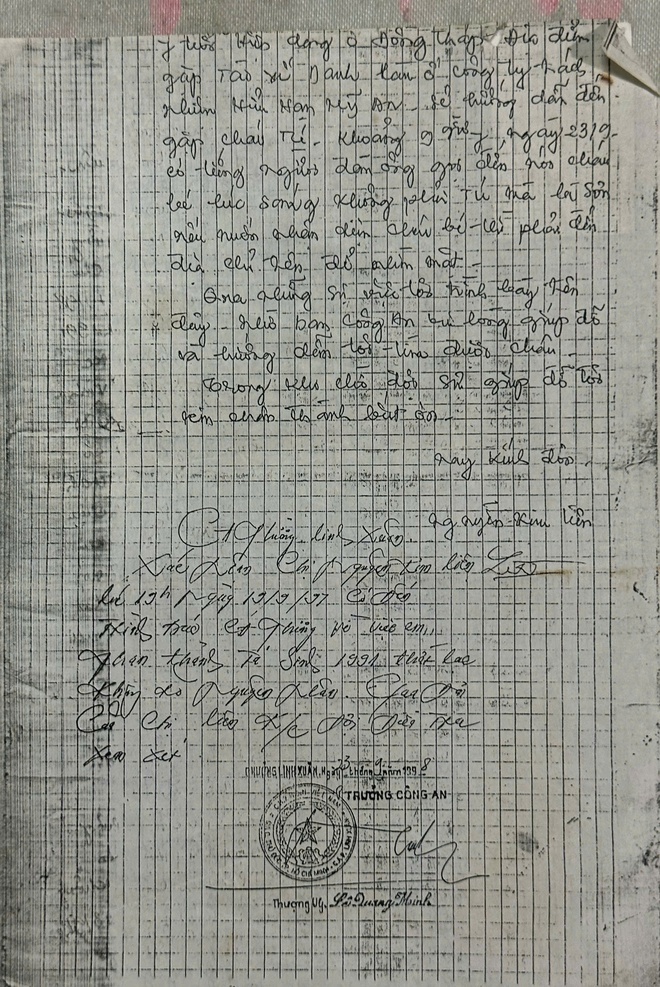 7 tuổi hiện đang ở Đồng Tháp. Địa điểm
gặp tao xử Danh Lam ở công ty trách
nhiệm Hữu Hạn Mỹ An. Sẽ hướng dẫn đến
gặp cháu Tú. Khoảng 9 giờ, ngày 23/9
có tiếng người đàn ông gọi đến nói cháu
bé lúc sáng không phải Tú mà là Sơn
nếu muốn nhận diện cháu bé thì phải đến
địa chỉ trên để nhìn mặt.
Qua những sự việc tôi trình bày trên
đây. Nhờ ban Công An vui lòng giúp đỡ
và hướng dẫn tôi tìm được cháu.
Trong khi chờ đợi sự giúp đỡ tôi
xin chân thành biết ơn.
nay kính đơn.
Nguyễn Kim Liên
CA Phường Linh Xuân
Xác nhận Chị Nguyễn Kim Liên
lúc 19h ngày 19/9/97 có đến
trình báo CA Phường về việc em
Phan Thành Tú Sinh 1991 thất lạc
không rõ nguyên nhân.
Của Chị Liên K/c
xem xét
PHƯỜNG LINH XUÂN, Ngày 23 tháng 9 năm 1998
TRƯỞNG CÔNG AN
Thượng úy. Lê Quang Minh